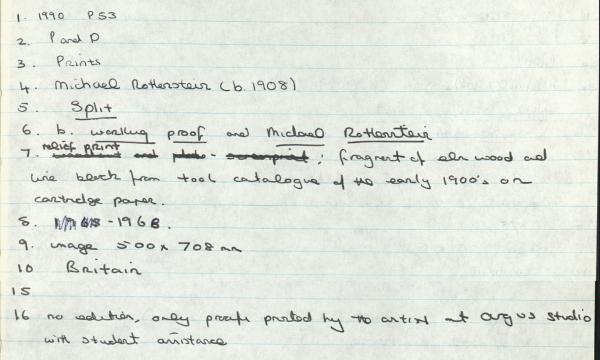 1. 1990 PS3
2. P and D
3. Prints
4. Michael Rothenstein (b. 1908)
5. Split
6. b. working proof and Michael Rothenstein
relief print
7. woodcut and photo- screenprint; fragment of elm wood and
line block from tool catalogue of the early 1900's on
cartridge paper.
8. -1968.
9. image 500 x 708 mm
10 Britain
15
16 no edition, only proofs printed by the artist at argus studio
with student assistance